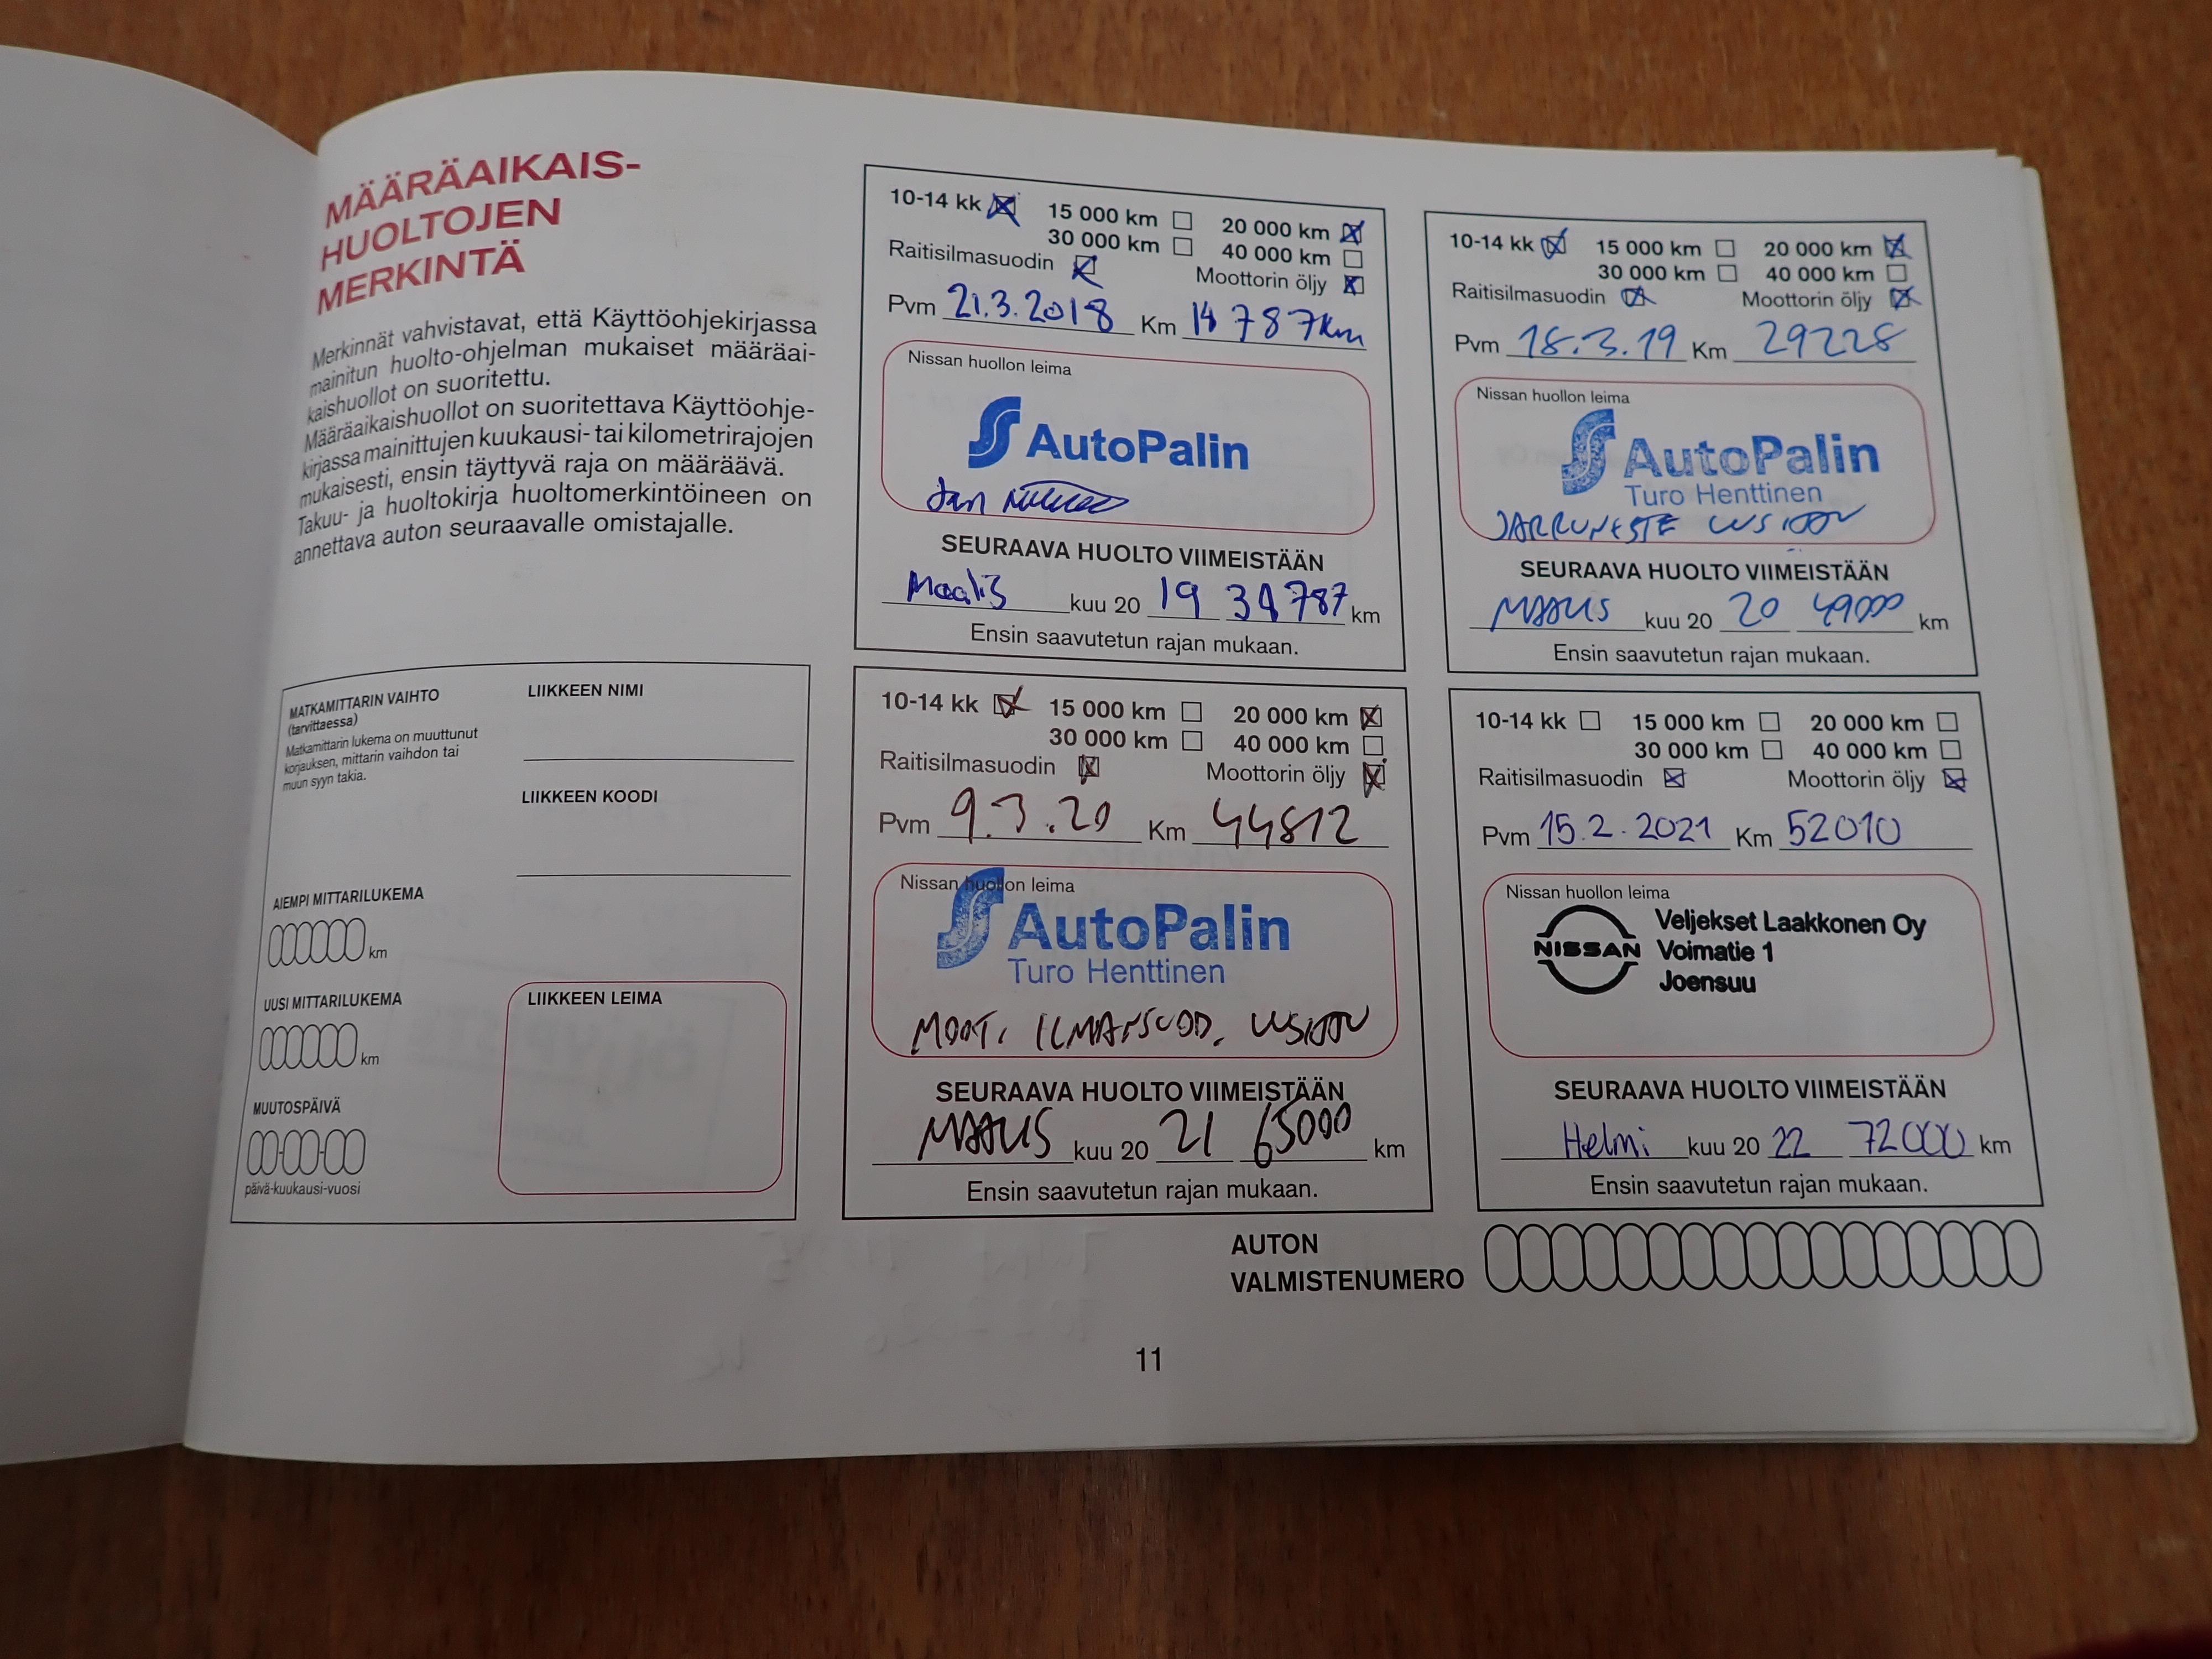 MÄÄRÄAIKAIS-
HUOLTOJEN
MERKINTÄ
Merkinnät vahvistavat, että Käyttöohjekirjassa
mainitun huolto-ohjelman mukaiset määräai-
kaishuollot on suoritettu.
Määräaikaishuollot on suoritettava Käyttöohje-
kirjassa mainittujen kuukausi- tai kilometrirajojen
mukaisesti, ensin täyttyvä raja on määräävä.
Takuu- ja huoltokirja huoltomerkintöineen on
annettava auton seuraavalle omistajalle.
MATKAMITTARIN VAIHTO
(tarvittaessa)
Matkamittarin lukema on muuttunut
korjauksen, mittarin vaihdon tai
muun syyn takia.
LIIKKEEN NIMI
LIIKKEEN KOODI
AIEMPI MITTARILUKEMA
km
UUSI MITTARILUKEMA
km
MUUTOSPÄIVÄ
päivä-kuukausi-vuosi
LIIKKEEN LEIMA
10-14 kk 15 000 km 20 000 km
30 000 km 40 000 km
Raitisilmasuodin Moottorin öljy
Pvm 21.3.2018 Km 14 787km
Nissan huollon leima
AutoPalin
Jan
SEURAAVA HUOLTO VIIMEISTÄÄN
Maalis kuu 20 19 34787 km
Ensin saavutetun rajan mukaan.
10-14 kk 15 000 km 20 000 km
30 000 km 40 000 km
Raitisilmasuodin Moottorin öljy
Pvm 18.3.19 Km 29228
Nissan huollon leima
AutoPalin
Turo Henttinen
JARRUNESTE UUSITTU
SEURAAVA HUOLTO VIIMEISTÄÄN
MAALIS kuu 20 20 49000 km
Ensin saavutetun rajan mukaan.
10-14 kk 15 000 km 20 000 km
30 000 km 40 000 km
Raitisilmasuodin Moottorin öljy
Pvm 9.3.20 Km 44812
Nissan huollon leima
AutoPalin
Turo Henttinen
MOOT. ILMANSUOD. UUSITTU
SEURAAVA HUOLTO VIIMEISTÄÄN
MAALIS kuu 20 21 65000 km
Ensin saavutetun rajan mukaan.
10-14 kk 15 000 km 20 000 km
30 000 km 40 000 km
Raitisilmasuodin Moottorin öljy
Pvm 15.2.2021 Km 52010
Nissan huollon leima
NISSAN
Veljekset Laakkonen Oy
Voimatie 1
Joensuu
SEURAAVA HUOLTO VIIMEISTÄÄN
Helmi kuu 20 22 72000 km
Ensin saavutetun rajan mukaan.
AUTON
VALMISTENUMERO
11